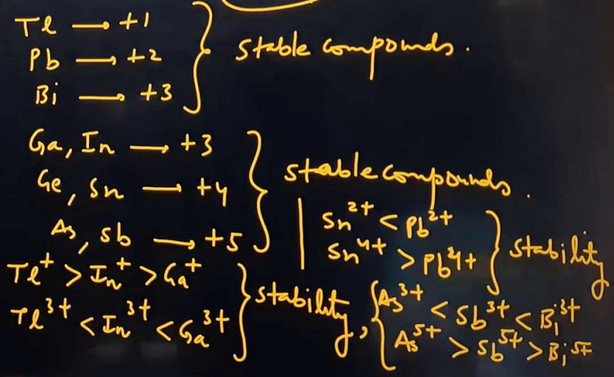 Tl → +1
Pb → +2 } stable compounds.
Bi → +3
Ga, In → +3
Ge, Sn → +4 } stable compounds.
As, Sb → +5
Sn²⁺ < Pb²⁺
Sn⁴⁺ > Pb⁴⁺ } stability
Tl⁺ > In⁺ > Ga⁺
Tl³⁺ < In³⁺ < Ga³⁺ } stability,
{ As³⁺ < Sb³⁺ < Bi³⁺
As⁵⁺ > Sb⁵⁺ > Bi⁵⁺